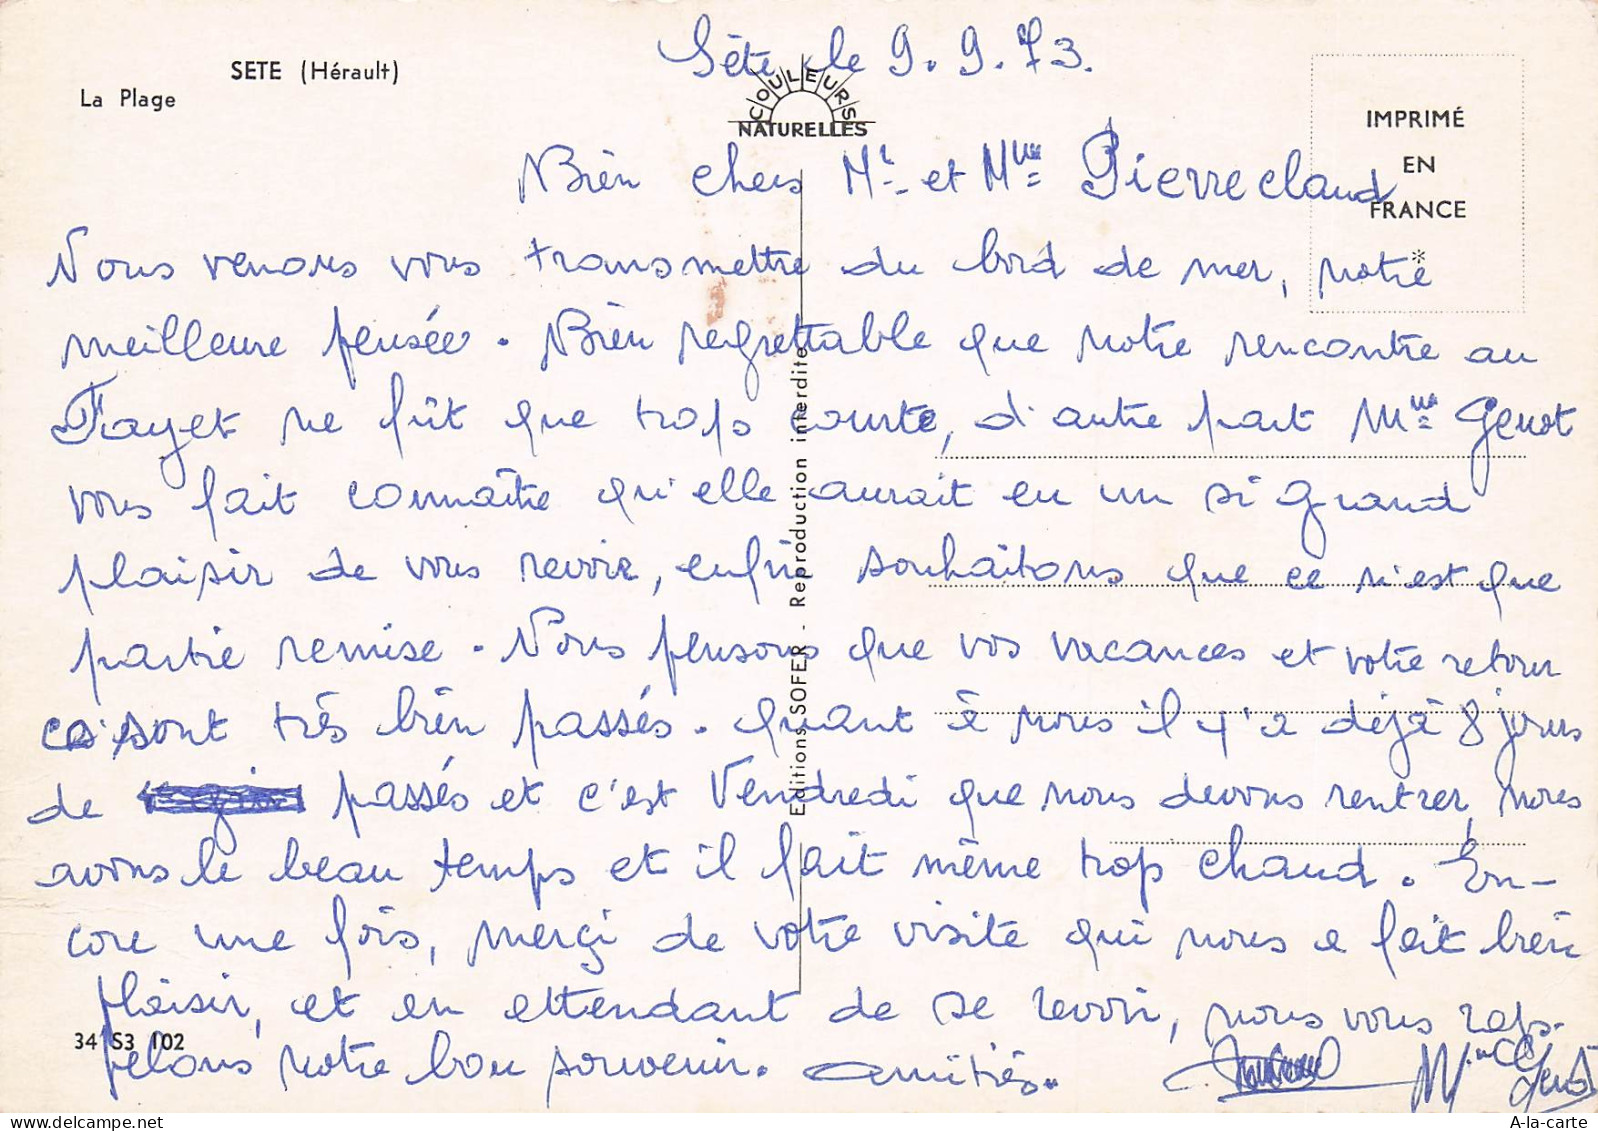 Sète le 9.9.73.
SETE (Hérault)
La Plage
COULEURS
NATURELLES
IMPRIMÉ
EN
FRANCE
Bien chers Mr et Mme Pierreclaud
Nous venons vous transmettre du bord de mer, notre
meilleure pensée. Bien regrettable que notre rencontre au
Fayet ne fût que trop courte, d'autre part Mme Genot
vous fait connaître qu'elle aurait eu un si grand
plaisir de vous revoir, enfin souhaitons que ce n'est que
partie remise. Nous pensons que vos vacances et votre retour
se sont très bien passés. Quant à nous il y'a déjà 8 jours
de passés et c'est Vendredi que nous devons rentrer, nous
avons le beau temps et il fait même trop chaud. En-
core une fois, merçi de votre visite qui nous a fait bien
plaisir, et en attendant de se revoir, nous vous rap-
pelons notre bon souvenir. Amitiés.
Genot
Editions SOFER - Reproduction interdite
34 S3 102
A-la-carte